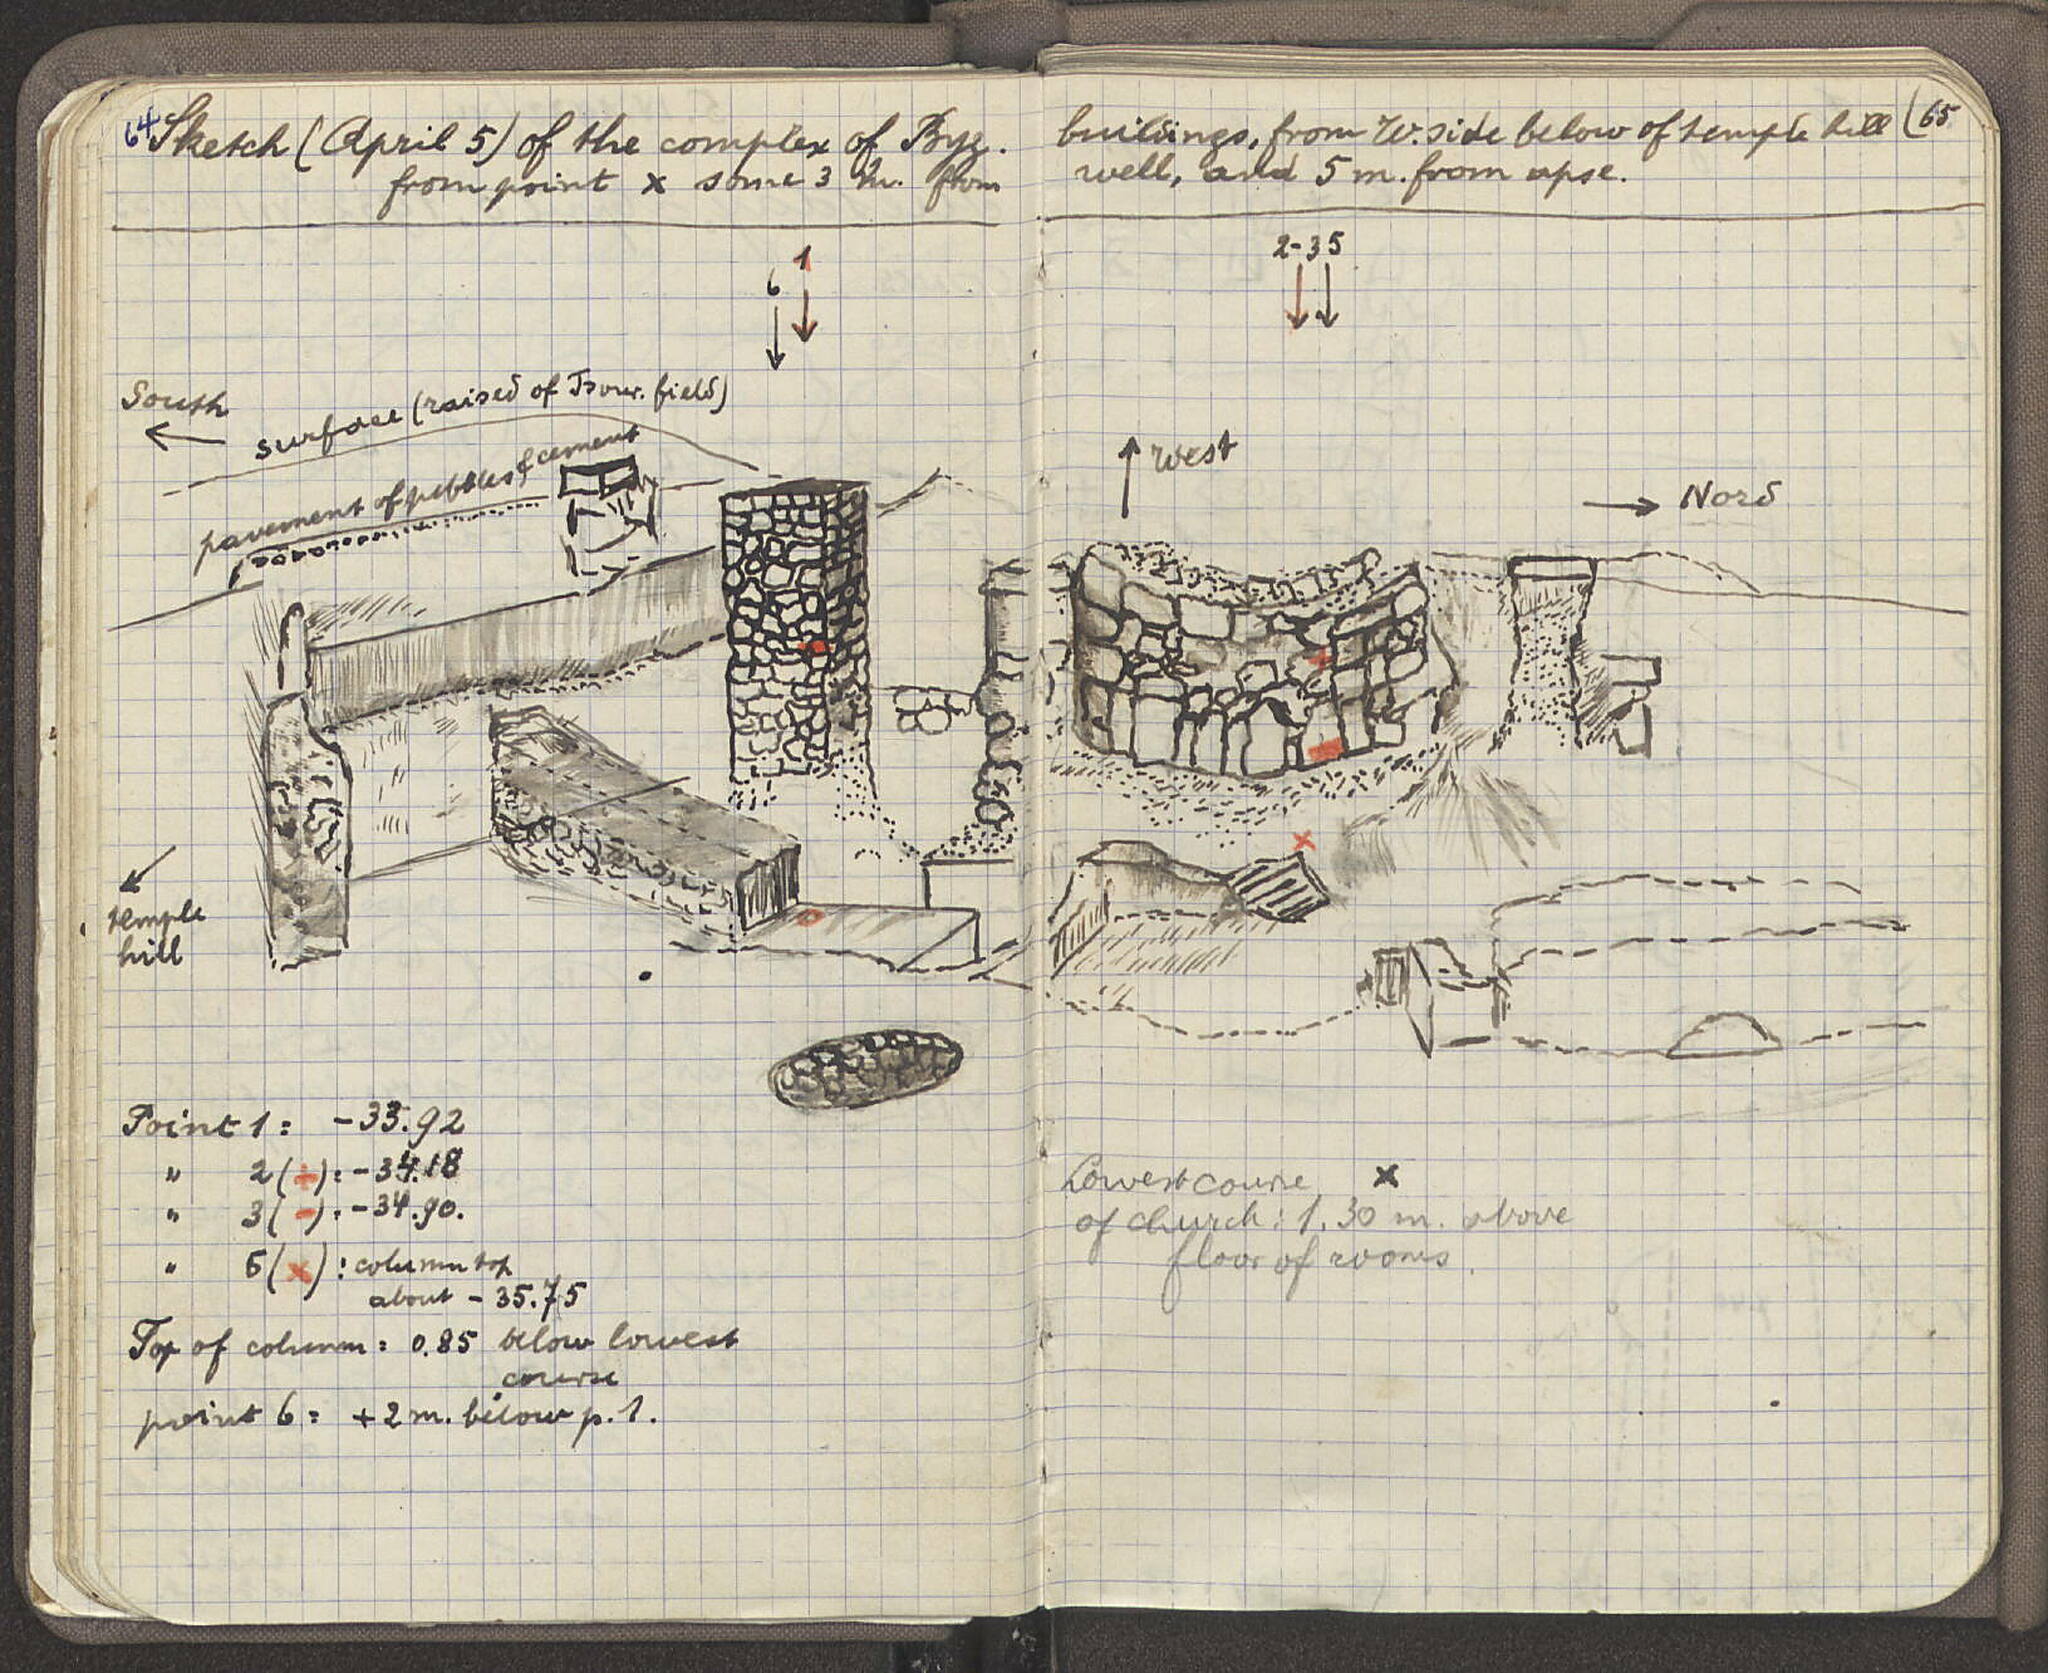 64 Sketch (April 5) of the complex of Byz.
from point x some 3 m. from
buildings, from W. side below of temple hill (65
well, and 5 m. from apse.
1
6
2-3 5
South
surface (raised of Tsour. field)
pavement of pebbles & cement
West
Nord
temple
hill
Point 1 = -33.92
" 2 (+) : -34.18
" 3 (-) : -34.90.
" 5 (x) : column top
about - 35.75
Top of column = 0.85 below lowest
course
point 6 = +2 m. below p. 1.
Lowest course x
of church : 1.30 m. above
floor of rooms.